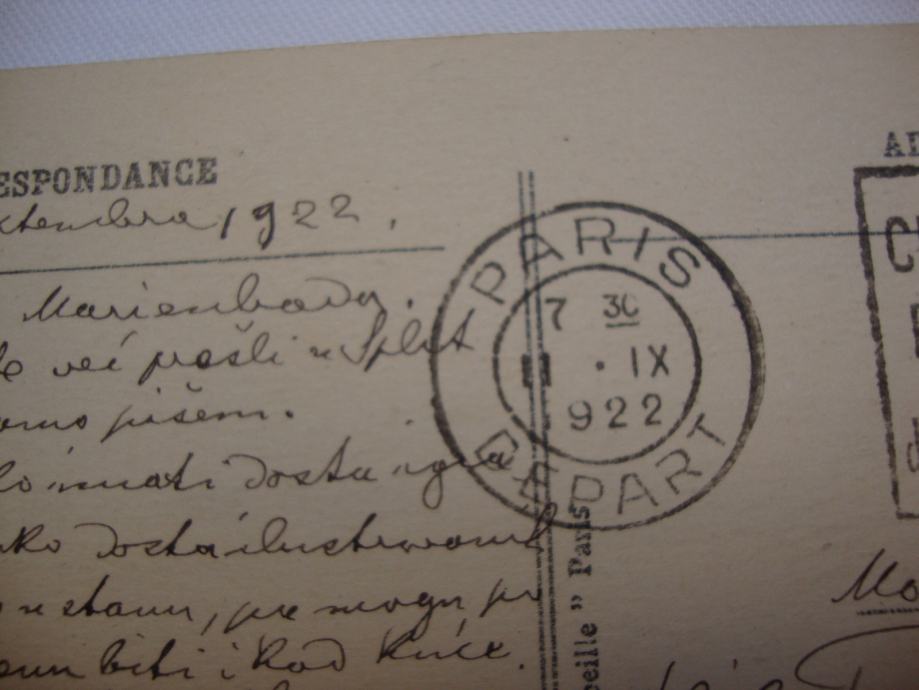 ESPONDANCE
ktembra 1922.
Marienbada.
već pošli u Split
pišem.
imati dosta igra
ko dosta ilustrovanih
u stanu, pa mogu
biti i kod kuće.
PARIS
7 30
IX
922
DEPART
eille " Paris